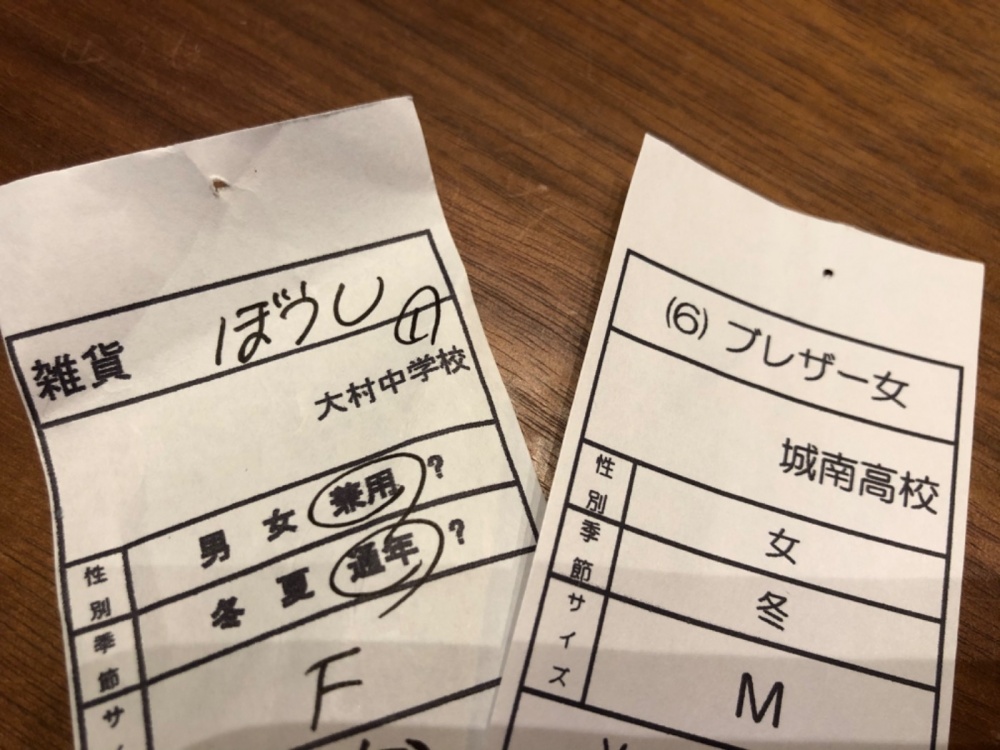 雑貨 ぼうし
大村中学校
性別 男 女 兼用 ?
季節 冬 夏 通年 ?
サイ F
(6) ブレザー女
城南高校
性別 女
季節 冬
サイズ M